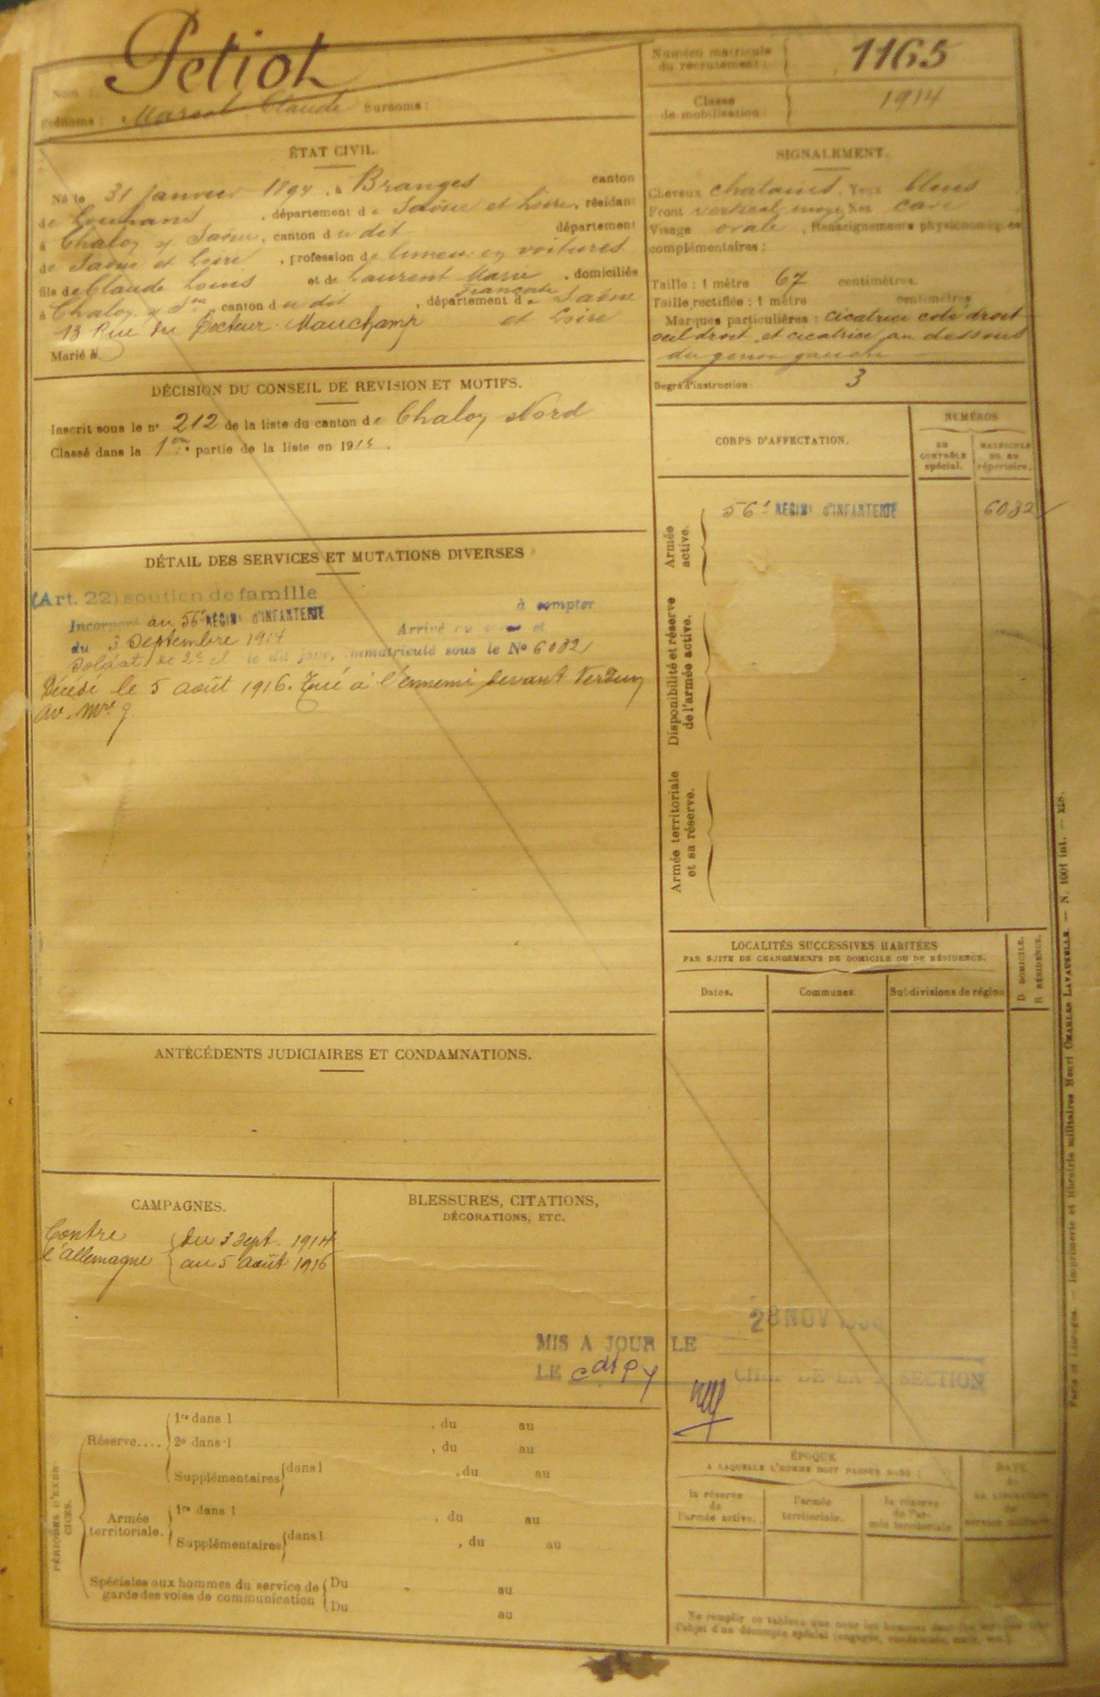 Petiot
Nom :
Prénoms : Marcel Claude Surnoms :
Numéro matricule
du recrutement :
1165
Classe
de mobilisation
1914
ÉTAT CIVIL.
Né le 31 janvier 1894, à Branges canton
de Louhans, département de Saône et Loire, résidant
à Chalon s/ Saône, canton du dit département
de Saône et Loire, profession de limeur en voitures
fils de Claude Louis et de Laurent Marie Françoise, domiciliés
à Chalon s/ Sne canton du dit, département de Saône
13 Rue du Docteur Mauchamp et Loire
Marié à
SIGNALEMENT.
Cheveux chatains. Yeux bleus
Front vertical moye Nez cave
Visage ovale, Renseignements physionomiques
complémentaires :
Taille : 1 mètre 67 centimètres.
Taille rectifiée : 1 mètre centimètres
Marques particulières : cicatrice coté droit
oeil droit et cicatrice au dessous
du genou gauche
Degré d'instruction : 3
DÉCISION DU CONSEIL DE REVISION ET MOTIFS.
Inscrit sous le n° 212 de la liste du canton de Chalon Nord
Classé dans la 1ère partie de la liste en 1914.
CORPS D'AFFECTATION.
NUMÉROS
AU
CONTRÔLE
spécial.
MATRICULE
OU AU
répertoire.
Armée
active.
56e RÉGIMt D'INFANTERIE
6082
Disponibilité et réserve
de l'armée active.
Armée territoriale
et sa réserve.
DÉTAIL DES SERVICES ET MUTATIONS DIVERSES
(Art. 22) soutien de famille
Incorporé au 56e RÉGIMt D'INFANTERIE à compter
du 3 Septembre 1914 Arrivé au corps et
Soldat de 2e cl le dit jour, immatriculé sous le No 6082
Décédé le 5 août 1916. Tué à l'ennemi devant Verdun
av. Mel
LOCALITÉS SUCCESSIVES HABITÉES
PAR SUITE DE CHANGEMENTS DE DOMICILE OU DE RÉSIDENCE.
D DOMICILE.
R RÉSIDENCE.
Dates.
Communes
Subdivisions de région
ANTÉCÉDENTS JUDICIAIRES ET CONDAMNATIONS.
CAMPAGNES.
Contre
l'allemagne
du 3 sept. 1914
au 5 août 1916
BLESSURES, CITATIONS,
DÉCORATIONS, ETC.
28 NOV
MIS A JOUR LE
LE
CHEF DE LA SECTION
PÉRIODES D'EXERCICES.
Réserve....
1re dans l , du au
2e dans l , du au
Supplémentaires dans l , du au
Armée
territoriale.
1re dans l , du au
Supplémentaires dans l , du au
Spéciales aux hommes du service de
garde des voies de communication
Du au
Du au
ÉPOQUE
A LAQUELLE L'HOMME DOIT PASSER DANS :
la réserve
de
l'armée active.
l'armée
territoriale.
la réserve
de l'armée
territoriale
DATE
de
LA LIBÉRATION
du
service militaire.
Ne remplir ce tableau que pour les hommes
l'objet d'un décompte spécial
Paris et Limoges. — Imprimerie et librairie militaires Henri CHARLES-LAVAUZELLE. — N. 1001 int. —